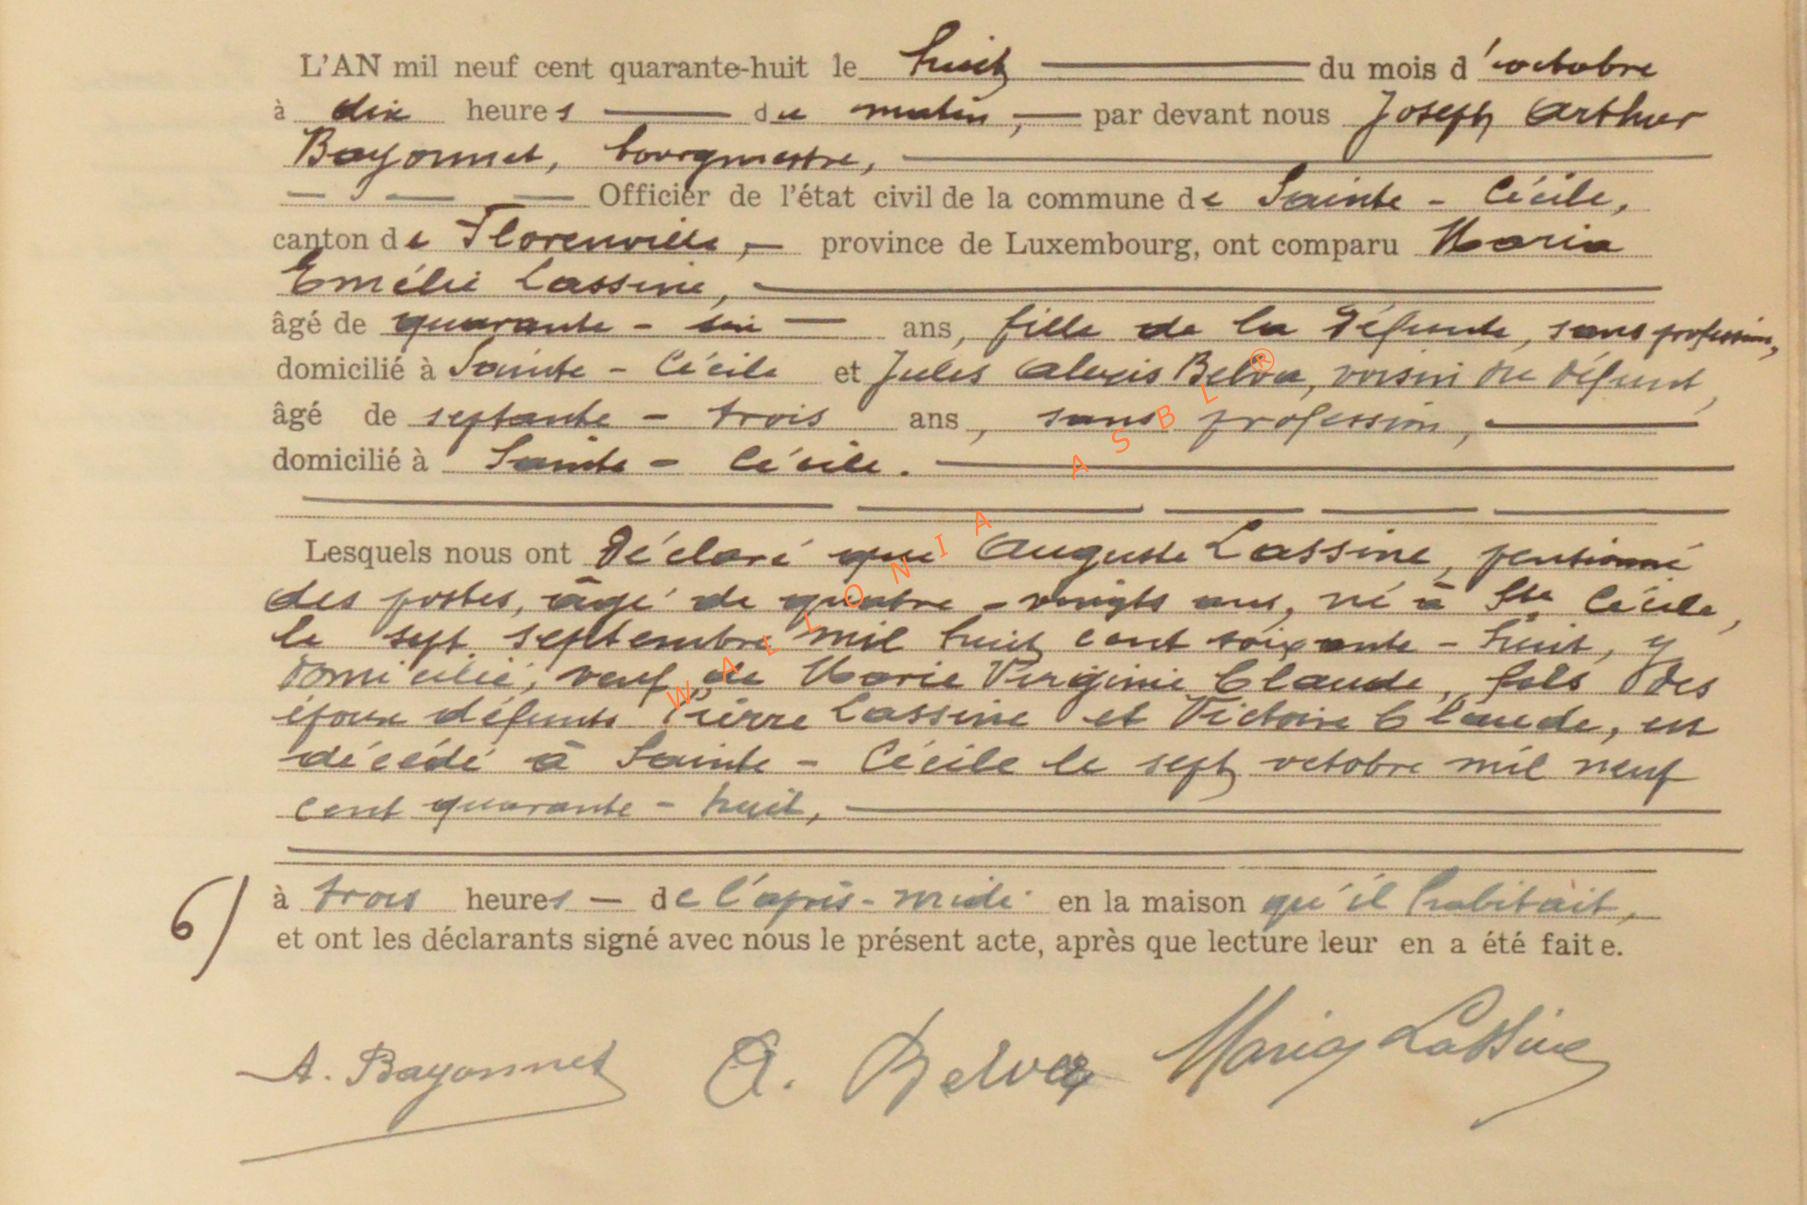 L'AN mil neuf cent quarante-huit le huit du mois d'octobre
à dix heures du matin, par devant nous Joseph Arthur
Bayonnet, bourgmestre,
Officier de l'état civil de la commune de Sainte-Cécile,
canton de Florenville, province de Luxembourg, ont comparu Maria
Emélie Lassine,
âgé de quarante - ans, fille de la défunte, sans profession,
domicilié à Sainte-Cécile et Jules Alexis Belva, voisin du défunt,
âgé de septante-trois ans, sans profession,
domicilié à Sainte-Cécile.
Lesquels nous ont déclaré que Auguste Lassine, pensionné
des postes, âgé de quatre-vingts ans, né à Ste Cécile,
le sept septembre mil huit cent soixante-huit, y
domicilié, veuf de Marie Virginie Claude, fils des
époux défunts Pierre Lassine et Victoire Claude, est
décédé à Sainte-Cécile le sept octobre mil neuf
cent quarante-huit,
6) à trois heures de l'après-midi en la maison qu'il habitait,
et ont les déclarants signé avec nous le présent acte, après que lecture leur en a été faite.
A. Bayonnet A. Belva Maria Lassine
WALLONIA ASBL®